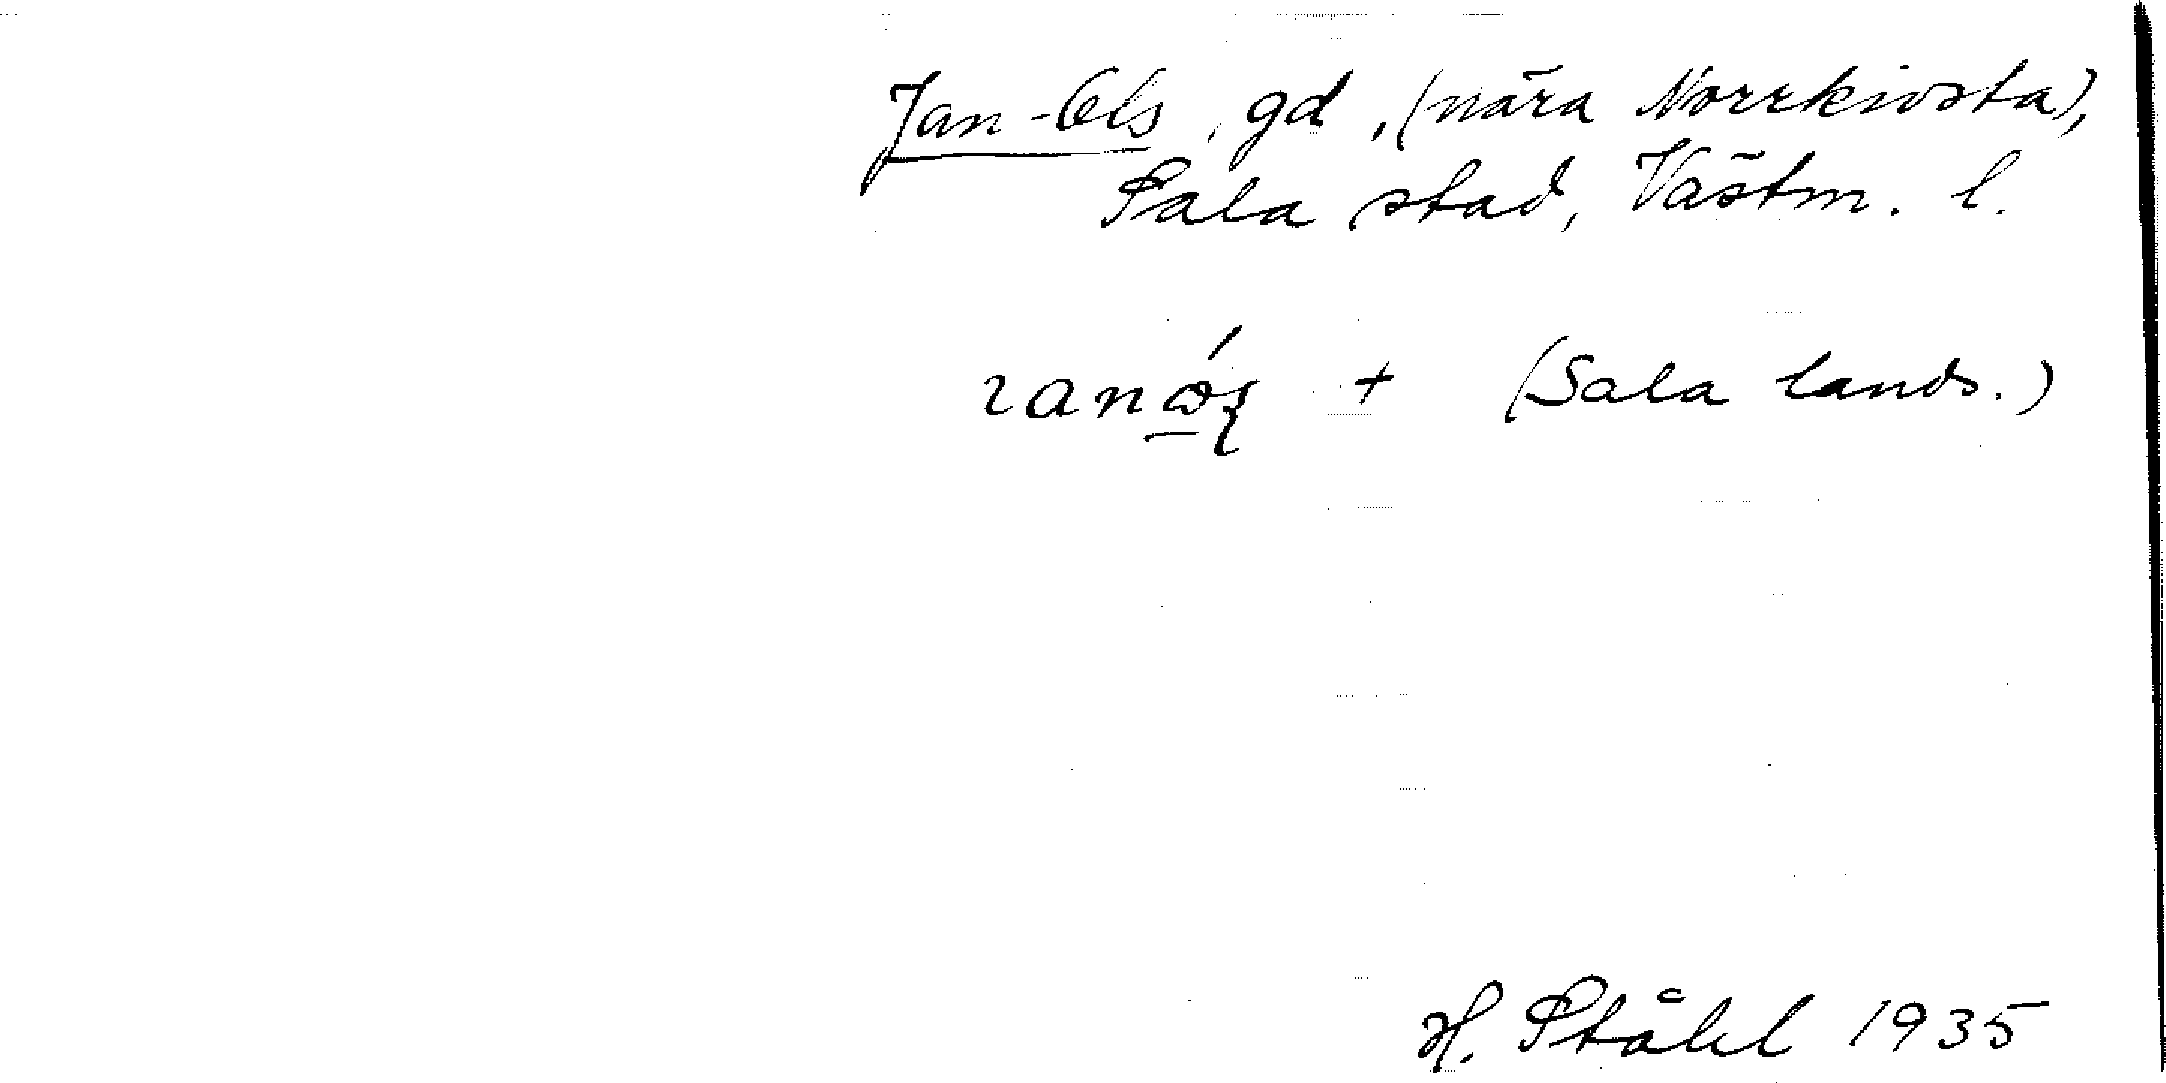 Jan-Ols, gd, (nära Norrkivsta),
Sala stad, Västm. l.
+ (Sala lands.)
H. Ståhl 1935